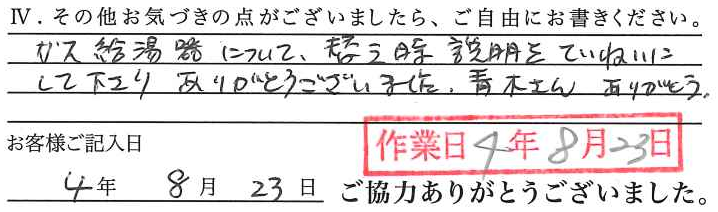 Ⅳ．その他お気づきの点がございましたら、ご自由にお書きください。
ガス給湯器について、替え時説明をていねいに
して下さり ありがとうございました。青木さん ありがとう。
お客様ご記入日
作業日4年8月23日
4年 8月 23日 ご協力ありがとうございました。